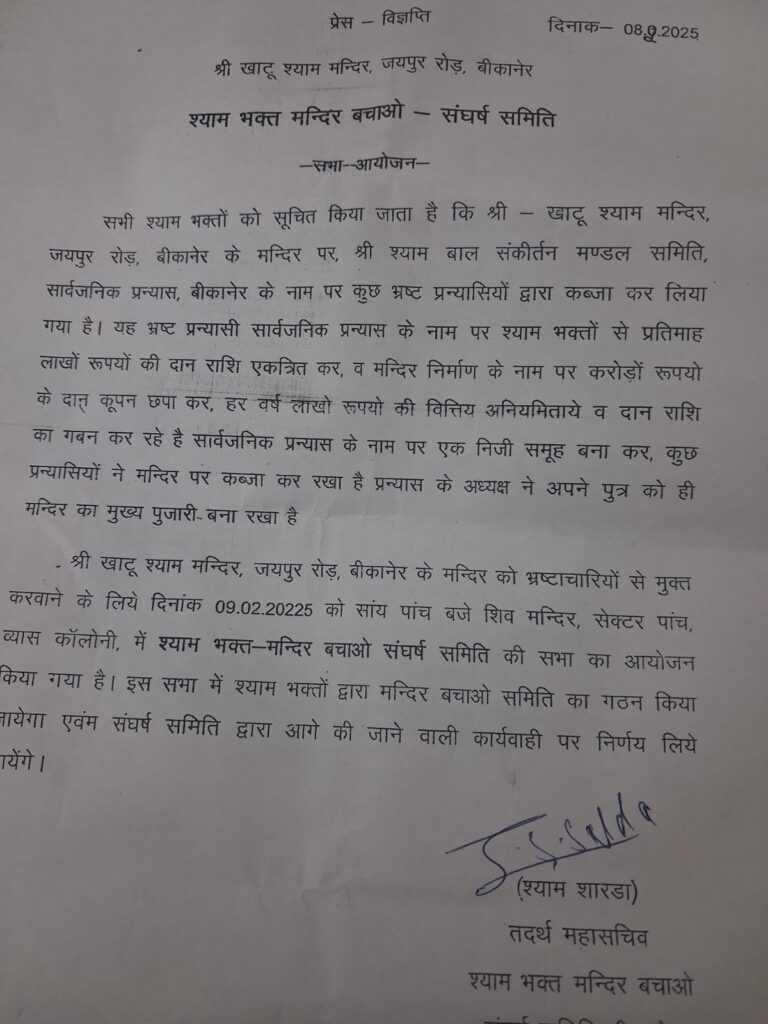 प्रेस – विज्ञप्ति
दिनाक– 08.2.2025
श्री खाटू श्याम मन्दिर, जयपुर रोड़, बीकानेर
श्याम भक्त मन्दिर बचाओ – संघर्ष समिति
–सभा–आयोजन–
सभी श्याम भक्तों को सूचित किया जाता है कि श्री – खाटू श्याम मन्दिर,
जयपुर रोड़, बीकानेर के मन्दिर पर, श्री श्याम बाल संकीर्तन मण्डल समिति,
सार्वजनिक प्रन्यास, बीकानेर के नाम पर कुछ भ्रष्ट प्रन्यासियों द्वारा कब्जा कर लिया
गया है। यह भ्रष्ट प्रन्यासी सार्वजनिक प्रन्यास के नाम पर श्याम भक्तों से प्रतिमाह
लाखों रूपयों की दान राशि एकत्रित कर, व मन्दिर निर्माण के नाम पर करोड़ों रूपयो
के दान् कूपन छपा कर, हर वर्ष लाखो रूपयो की वित्तिय अनियमिताये व दान राशि
का गबन कर रहे है सार्वजनिक प्रन्यास के नाम पर एक निजी समूह बना कर, कुछ
प्रन्यासियों ने मन्दिर पर कब्जा कर रखा है प्रन्यास के अध्यक्ष ने अपने पुत्र को ही
मन्दिर का मुख्य पुजारी-बना रखा है
श्री खाटू श्याम मन्दिर, जयपुर रोड़, बीकानेर के मन्दिर को भ्रष्टाचारियों से मुक्त
करवाने के लिये दिनांक 09.02.20225 को सांय पांच बजे शिव मन्दिर, सेक्टर पांच,
व्यास कॉलोनी, में श्याम भक्त–मन्दिर बचाओ संघर्ष समिति की सभा का आयोजन
किया गया है। इस सभा में श्याम भक्तों द्वारा मन्दिर बचाओ समिति का गठन किया
जायेगा एवंम संघर्ष समिति द्वारा आगे की जाने वाली कार्यवाही पर निर्णय लिये
येंगे।
(श्याम शारडा)
तदर्थ महासचिव
श्याम भक्त मन्दिर बचाओ